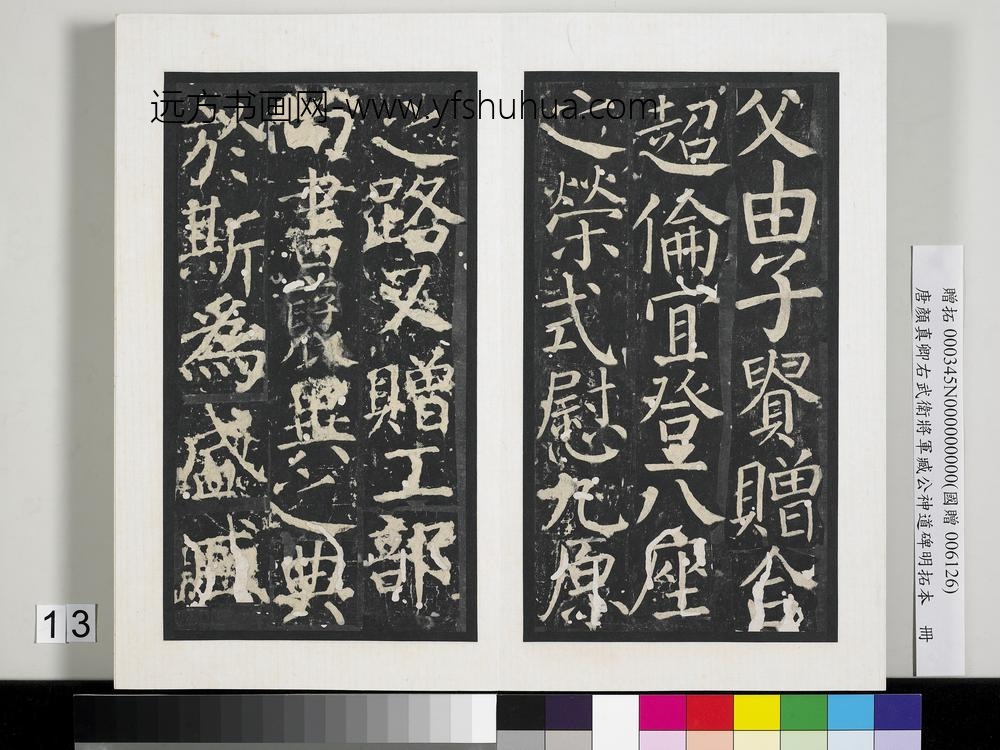 父由子貴贈合
超倫宜登八座
之榮式慰九原
之路又贈工部
尚書哀異之典
於斯為盛臧
远方书画网-www.yfshuhua.com
贈拓 000345N000000000(國贈 006126)
唐顏真卿右武衛將軍臧公神道碑明拓本 冊
13